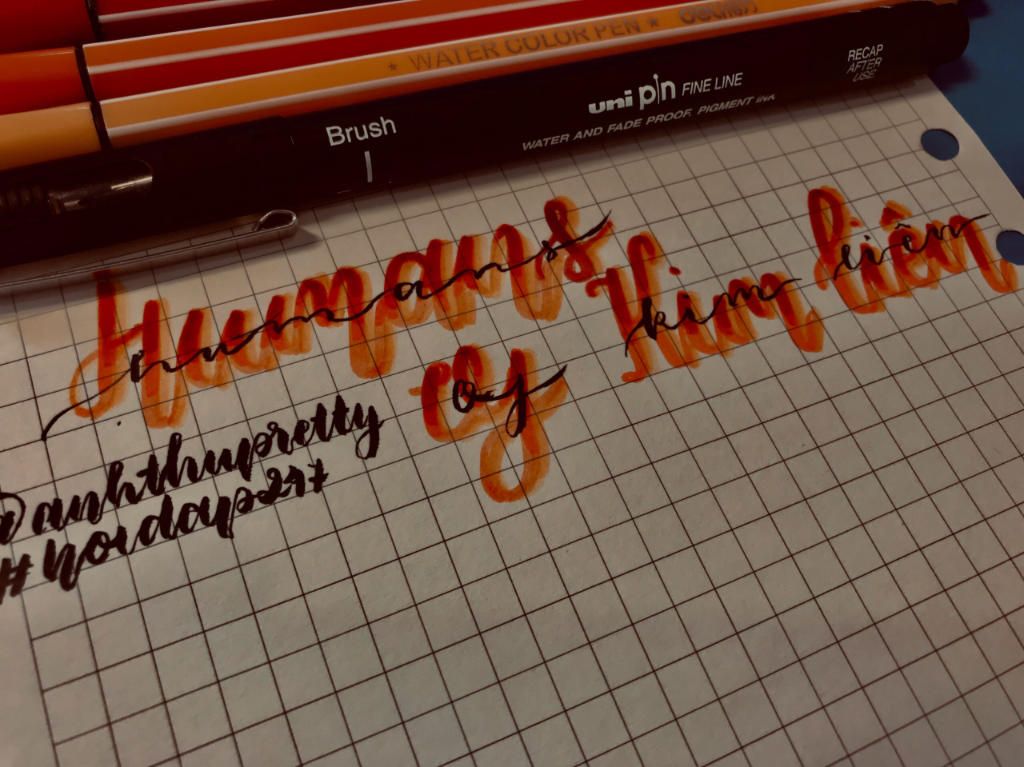 ★ WATER COLOR PEN ★
Brush
uni pin FINE LINE
WATER AND FADE PROOF, PIGMENT INK
RECAP
AFTER
USE
Humans
humans
Of
of
Kim liên
kim liên
@anhthupretty
#hoidap247